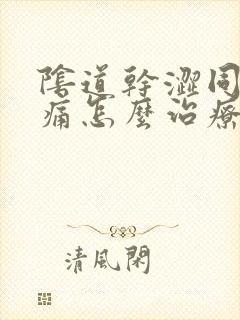 陰道幹澀同
痛怎麼治療
清風閑